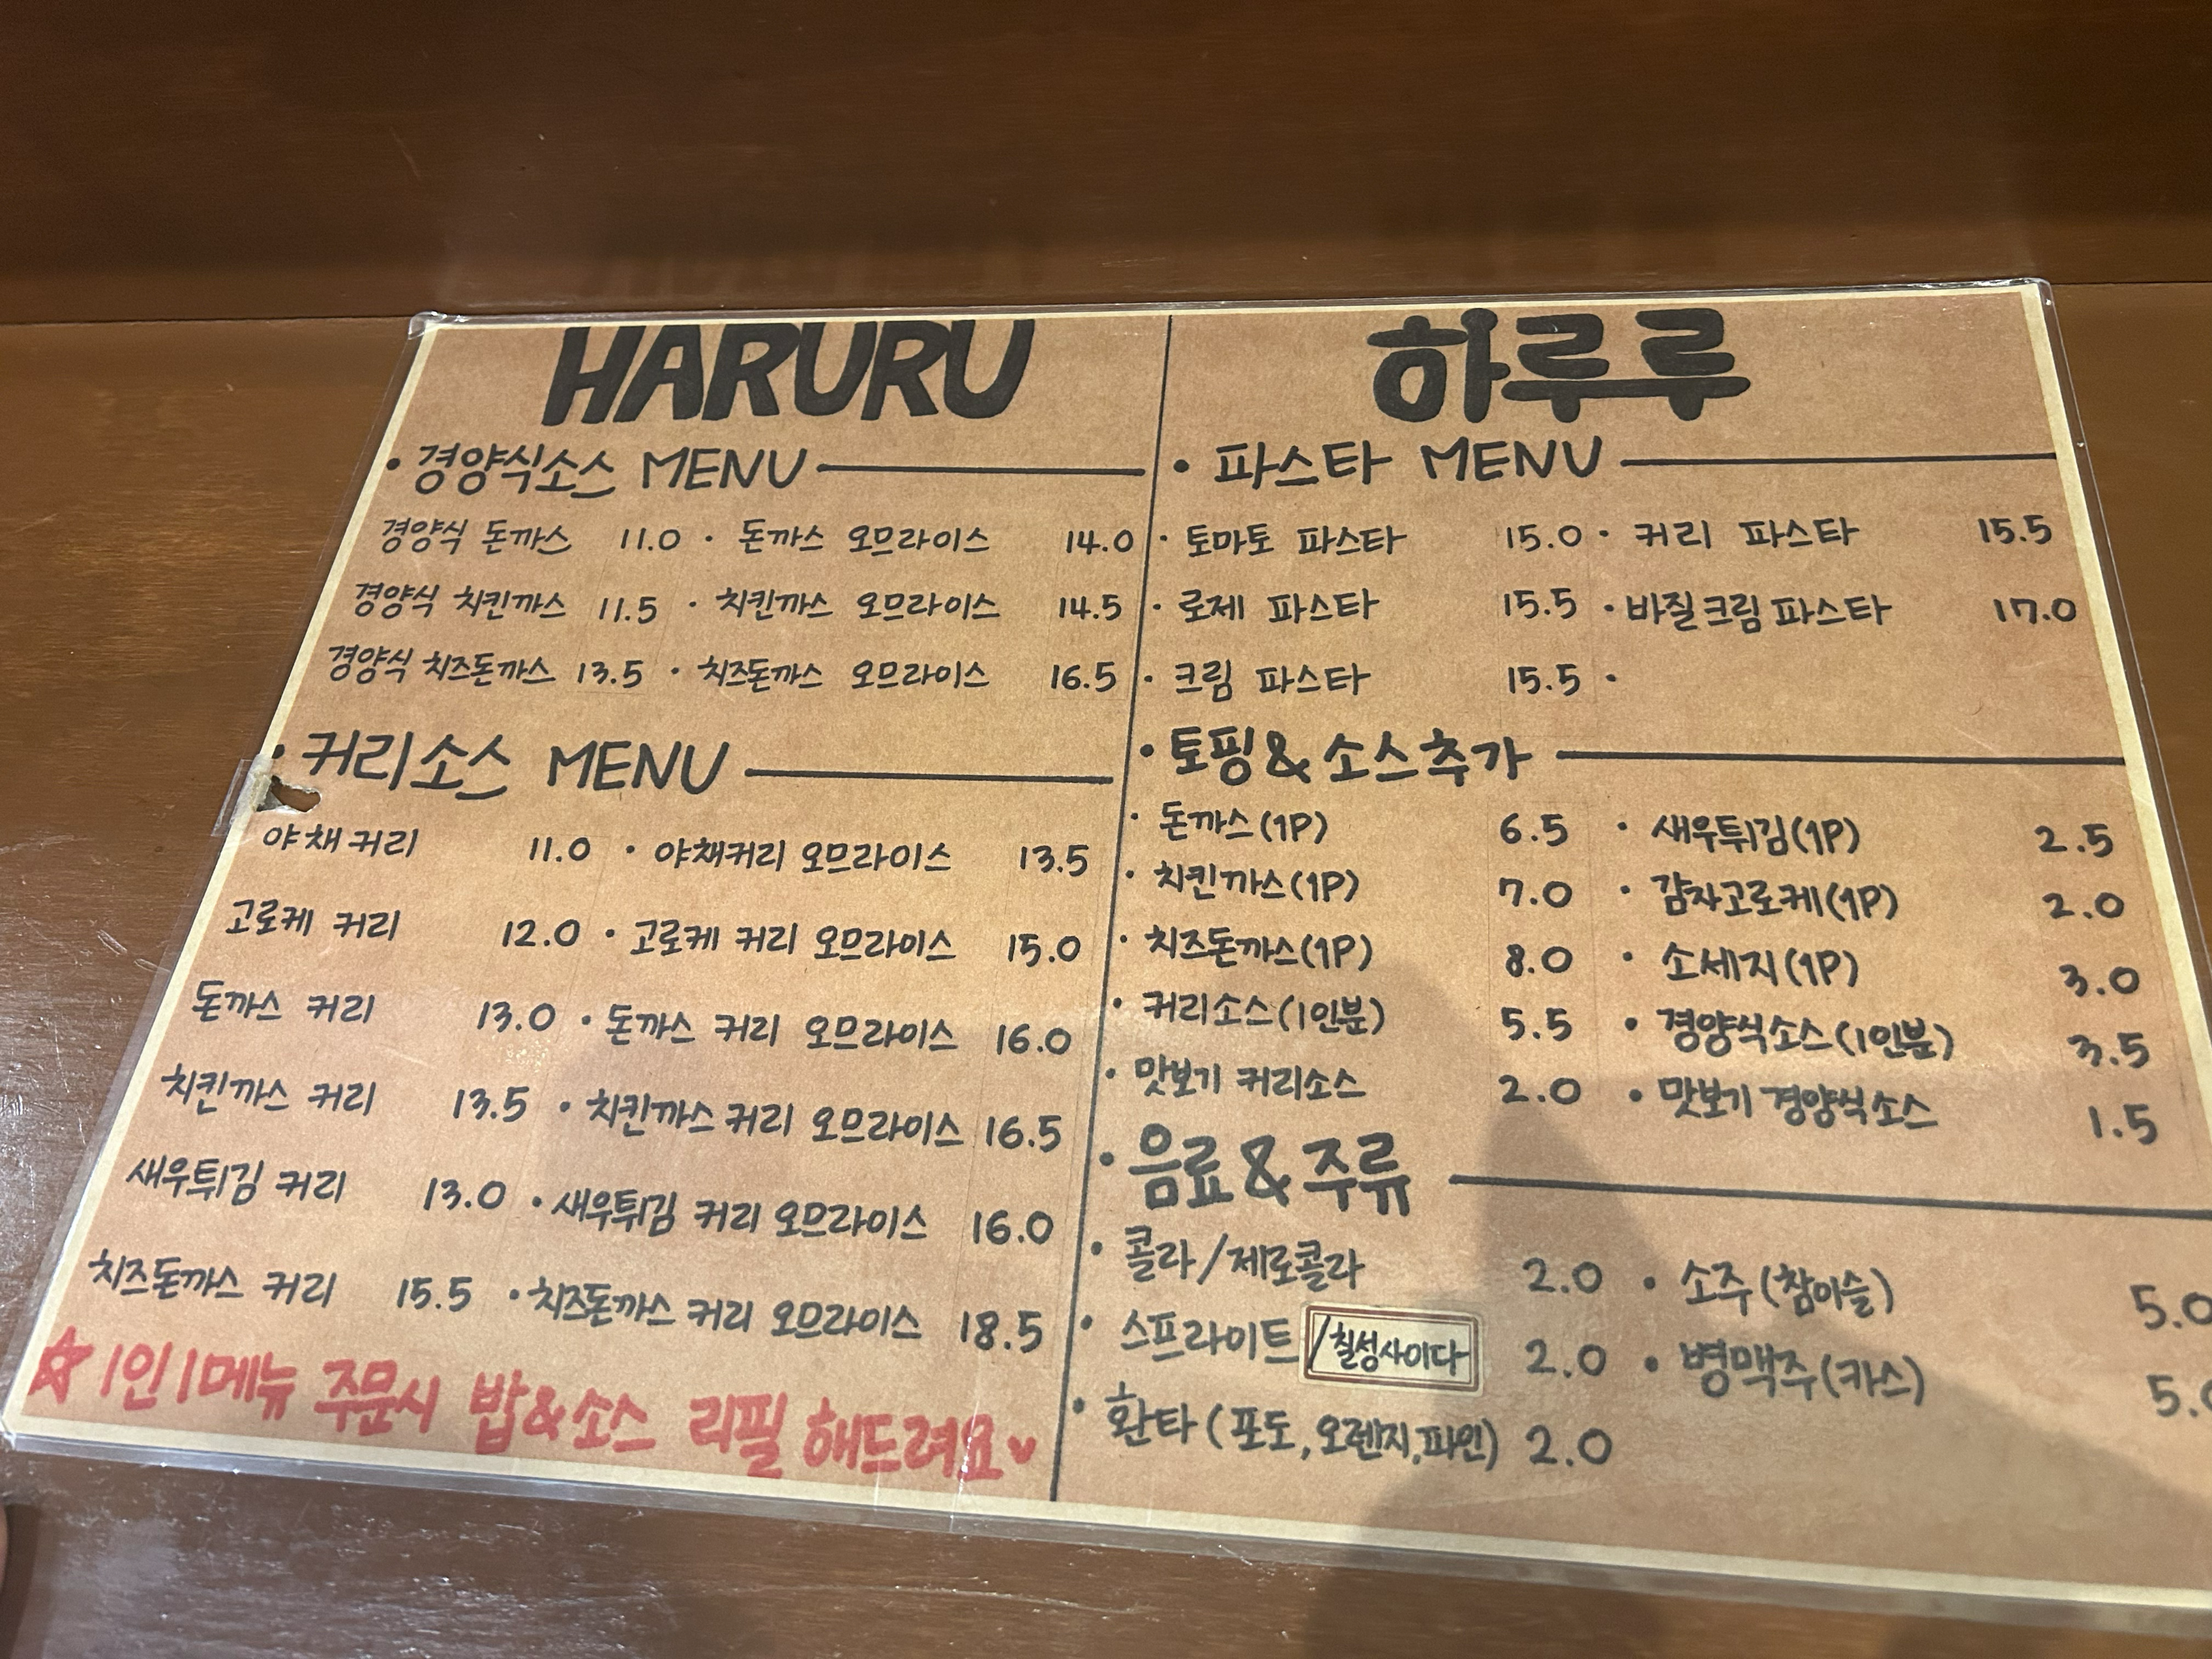 HARURU
• 경양식소스 MENU
경양식 돈까스 11.0 • 돈까스 오므라이스 14.0
경양식 치킨까스 11.5 • 치킨까스 오므라이스 14.5
경양식 치즈돈까스 13.5 • 치즈돈까스 오므라이스 16.5
• 커리소스 MENU
야채커리 11.0 • 야채커리 오므라이스 13.5
고로케 커리 12.0 • 고로케 커리 오므라이스 15.0
돈까스 커리 13.0 • 돈까스 커리 오므라이스 16.0
치킨까스 커리 13.5 • 치킨까스 커리 오므라이스 16.5
새우튀김 커리 13.0 • 새우튀김 커리 오므라이스 16.0
치즈돈까스 커리 15.5 • 치즈돈까스 커리 오므라이스 18.5
☆ 1인 1메뉴 주문시 밥&소스 리필 해드려요♥
하루루
• 파스타 MENU
• 토마토 파스타 15.0 • 커리 파스타 15.5
• 로제 파스타 15.5 • 바질크림파스타 17.0
• 크림 파스타 15.5 •
• 토핑&소스추가
• 돈까스(1P) 6.5 • 새우튀김(1P) 2.5
• 치킨까스(1P) 7.0 • 감자고로케(1P) 2.0
• 치즈돈까스(1P) 8.0 • 소세지(1P) 3.0
• 커리소스(1인분) 5.5 • 경양식소스(1인분) 3.5
• 맛보기 커리소스 2.0 • 맛보기 경양식소스 1.5
• 음료&주류
• 콜라/제로콜라 2.0 • 소주(참이슬) 5.0
• 스프라이트/칠성사이다 2.0 • 병맥주(카스) 5.0
• 환타(포도,오렌지,파인) 2.0